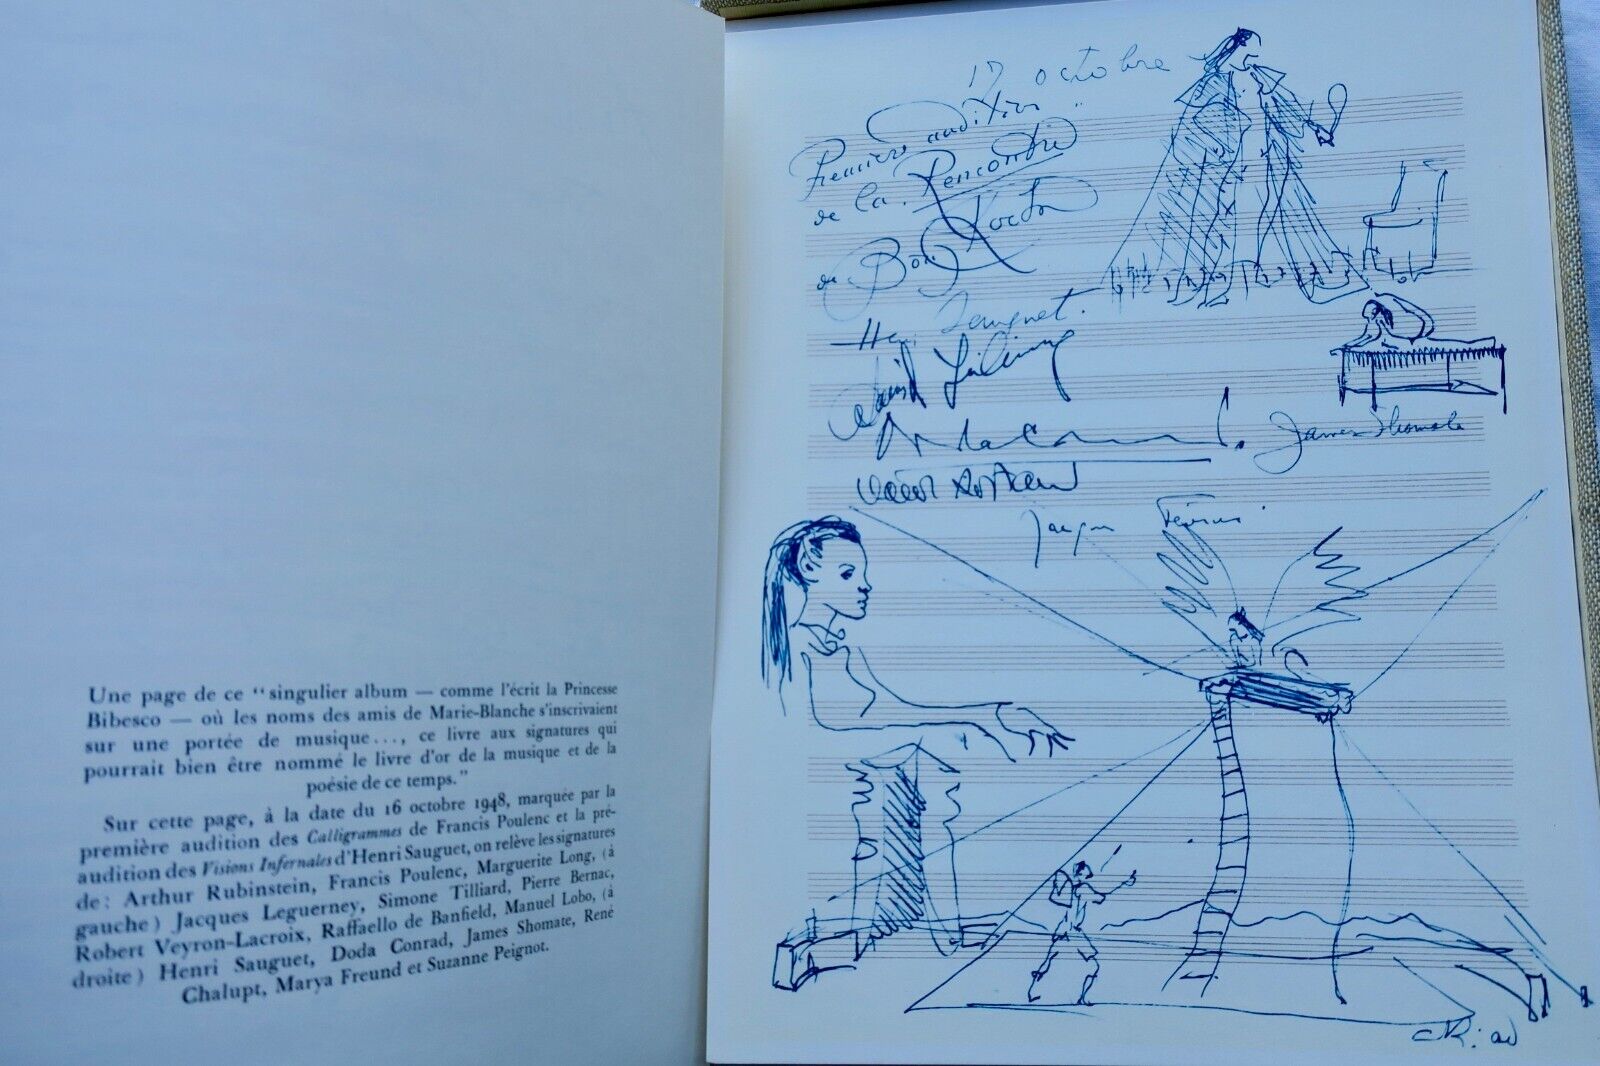 Une page de ce “singulier album — comme l'écrit la Princesse
Bibesco — où les noms des amis de Marie-Blanche s'inscrivaient
sur une portée de musique..., ce livre aux signatures qui
pourrait bien être nommé le livre d'or de la musique et de la
poésie de ce temps.”
Sur cette page, à la date du 16 octobre 1948, marquée par la
première audition des Calligrammes de Francis Poulenc et la pré-
audition des Visions Infernales d'Henri Sauguet, on relève les signatures
de : Arthur Rubinstein, Francis Poulenc, Marguerite Long, (à
gauche) Jacques Leguerney, Simone Tilliard, Pierre Bernac,
Robert Veyron-Lacroix, Raffaello de Banfield, Manuel Lobo, (à
droite) Henri Sauguet, Doda Conrad, James Shomate, René
Chalupt, Marya Freund et Suzanne Peignot.
17 octobre
Première audition
de la Rencontre
Henri Sauguet.
James Shomate
Jacques Février.